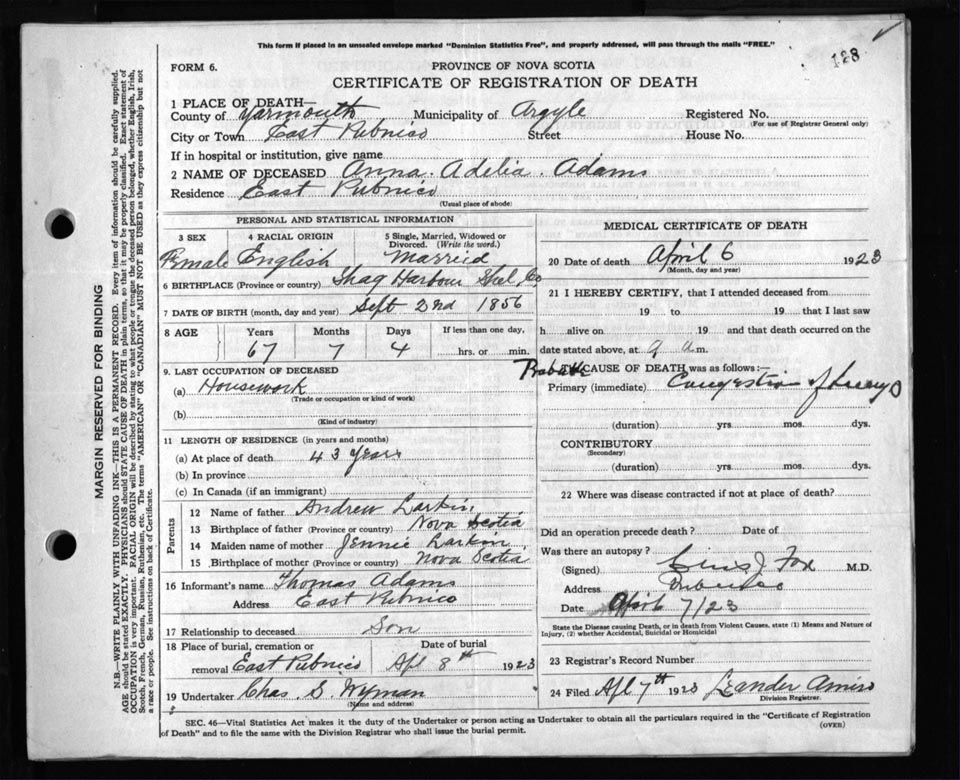 This form if placed in an unsealed envelope marked "Dominion Statistics Free", and properly addressed, will pass through the mails "FREE."
128
FORM 6.
PROVINCE OF NOVA SCOTIA
CERTIFICATE OF REGISTRATION OF DEATH
1 PLACE OF DEATH—
County of Yarmouth Municipality of Argyle Registered No.
(For use of Registrar General only)
City or Town East Pubnico Street House No.
If in hospital or institution, give name
2 NAME OF DECEASED Anna Adelia Adams
Residence East Pubnico
(Usual place of abode)
PERSONAL AND STATISTICAL INFORMATION
3 SEX 4 RACIAL ORIGIN 5 Single, Married, Widowed or Divorced. (Write the word.)
Female English Married
6 BIRTHPLACE (Province or country) Shag Harbour Shel. Co
7 DATE OF BIRTH (month, day and year) Sept 2nd 1856
8 AGE Years Months Days If less than one day,
67 7 4 hrs. or min.
9. LAST OCCUPATION OF DECEASED
(a) Housework
(Trade or occupation or kind of work)
(b)
(Kind of industry)
11 LENGTH OF RESIDENCE (in years and months)
(a) At place of death 43 years
(b) In province
(c) In Canada (if an immigrant)
Parents
12 Name of father Andrew Larkin
13 Birthplace of father (Province or country) Nova Scotia
14 Maiden name of mother Jennie Larkin
15 Birthplace of mother (Province or country) Nova Scotia
16 Informant's name Thomas Adams
Address East Pubnico
17 Relationship to deceased Son
18 Place of burial, cremation or Date of burial
removal East Pubnico Apl 8th 1923
19 Undertaker Chas S. Wyman
(Name and address)
MEDICAL CERTIFICATE OF DEATH
20 Date of death April 6 1923
(Month, day and year)
21 I HEREBY CERTIFY, that I attended deceased from
19 to 19 that I last saw
h alive on 19 and that death occurred on
date stated above, at 9 a m.
CAUSE OF DEATH was as follows:—
Primary (immediate) Congestion of Lungs
(duration) yrs. mos. dys.
CONTRIBUTORY
(Secondary)
(duration) yrs. mos. dys.
22 Where was disease contracted if not at place of death?
Did an operation precede death? Date of
Was there an autopsy?
(Signed) Fox M.D.
Address Pubnico
Date April 7/23
State the Disease causing Death, or in death from Violent Causes, state (1) Means and Nature of Injury, (2) whether Accidental, Suicidal or Homicidal
23 Registrar's Record Number
24 Filed Apl 7th 1923 Leander Amiro
Division Registrar.
SEC. 46—Vital Statistics Act makes it the duty of the Undertaker or person acting as Undertaker to obtain all the particulars required in the "Certificate of Registration
of Death" and to file the same with the Division Registrar who shall issue the burial permit. (OVER)
MARGIN RESERVED FOR BINDING
N.B.—WRITE PLAINLY WITH UNFADING INK—THIS IS A PERMANENT RECORD. Every item of information should be carefully supplied.
AGE should be stated EXACTLY. PHYSICIANS should STATE CAUSE OF DEATH in plain terms, so that it may be properly classified. Exact statement of
OCCUPATION is very important. RACIAL ORIGIN will be described by stating to what people or tongue the deceased person belonged, whether English, Irish,
Scotch, French, German, Russian, Ruthenian, etc. The terms "AMERICAN" OR "CANADIAN" MUST NOT BE USED as they express citizenship but not
a race or people. See instructions on back of Certificate.